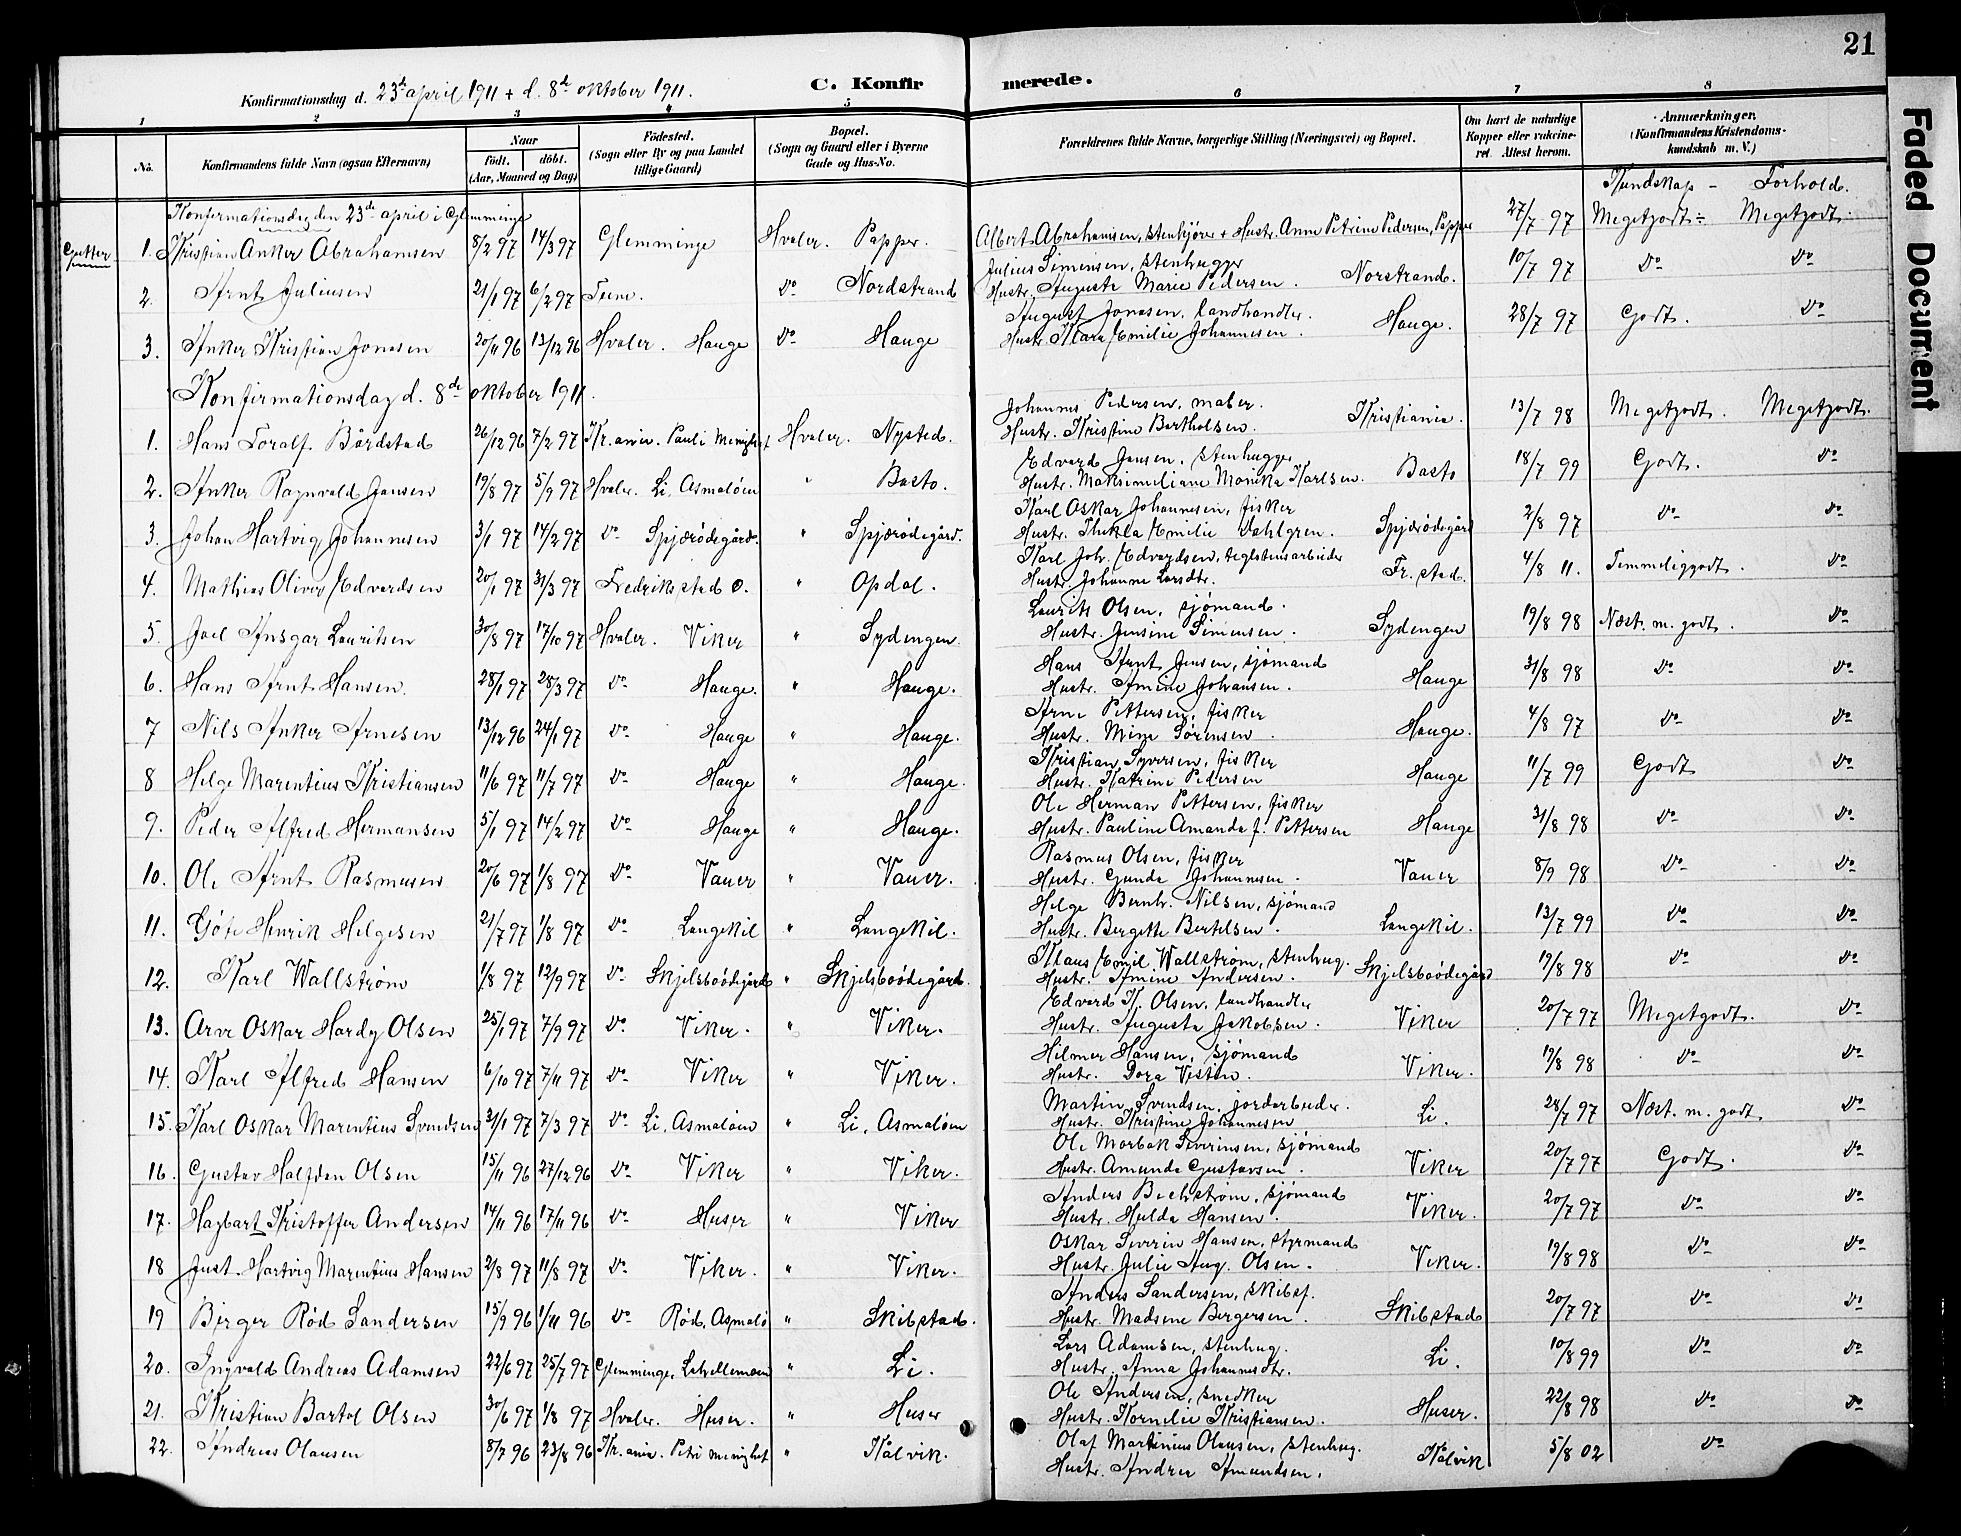 21
Faded Document
Konfirmationsdag d. 23de april 1911 + d. 8de oktober 1911.
C. Konfirmerede.
1 2 3 4 5 6 7 8
No.
Konfirmandens fulde Navn (ogsaa Efternavn)
Naar
født. døbt.
(Aar, Maaned og Dag)
Fødested.
(Sogn eller By og paa Landet
tillige Gaard)
Bopæl.
(Sogn og Gaard eller i Byerne
Gade og Hus-No.
Forældrenes fulde Navne, borgerlige Stilling (Næringsvei) og Bopæl.
Om havt de naturlige
Kopper eller vakcine-
ret. Attest herom.
Anmærkninger.
(Konfirmandens Kristendoms-
kundskab m. V.)
Kundskap – Forhold.
Konfirmationsdag den 23de april i Glemminge
Gutter
1. Kristian Anker Abrahamsen 8/2 97 14/3 97 Glemminge Hvaler. Papper. Albert Abrahamsen, stenkjører + Hustr. Anne Petrine Pedersen, Papper 27/7 97 Megetgodt Megetgodt.
2. Arnt Juliusen 21/1 97 6/2 97 Tune. do Nordstrand Julius Simensen, stenhugger
Hustr. Auguste Marie Pedersen. Norstrand. 10/7 97 do do
3. Anker Kristian Jonasen 20/11 96 13/12 96 Hvaler. Hauge do Hauge August Jonasen, landhandler.
Hustr. Klara Emilie Johannesen. Hauge. 28/7 97 Godt. do
Konfirmationsdag d. 8de oktober 1911.
1. Hans Toralf Bårdstad 26/12 96 7/2 97 Kr.ania. Pauli Menighet Hvaler. Nysted. Johannes Pedersen, maler.
Hustr. Kristine Bertholsen. Kristiania. 13/7 98 Megetgodt. Megetgodt.
2. Anker Ragnvald Jansen 19/8 97 5/9 97 Hvaler. Li, Asmaløen " Basto. Edvard Jansen, stenhugger
Hustr. Maksimiliane Monika Karlsen. Basto 18/7 99 Godt. do
3. Johan Hartvig Johannesen 3/1 97 14/2 97 do Spjærødegård. " Spjærødegård. Karl Oskar Johannesen, fisker
Hustr. Thekla Emilie Dahlgren. Spjærødegård 2/8 97 do do
4. Mathias Oliver Edvardsen 20/1 97 31/3 97 Fredrikstad O. " Opdal. Karl Joh. Edvardsen, teglstensarbeider
Hustr. Johanne Larsdtr. Fr.stad. 4/8 11. Temmeliggodt. do
5. Joel Ansgar Lauritsen 30/8 97 17/10 97 Hvaler. Viker " Sydengen. Laurits Olsen, sjømand.
Hustr. Jensine Simensen. Sydengen 19/8 98 Næst. m. godt. do
6. Hans Arnt Hansen. 28/1 97 28/3 97 do Hauge. " Hauge. Hans Arnt Jensen, sjømand
Hustr. Amine Johansen. Hauge 31/8 98 do do
7 Nils Anker Arnesen 13/12 96 24/1 97 do Hauge " Hauge. Arne Pettersen, fisker
Hustr. Mine Sørensen. Hauge. 4/8 97 do do
8 Helge Marentius Kristiansen 11/6 97 11/7 97 do Hauge " Hauge. Kristian Syversen, fisker
Hustr. Katrine Pedersen Hauge 11/7 99 Godt do
9. Peder Alfred Hermansen 5/1 97 14/2 97 do Hauge " Hauge. Ole Herman Pettersen, fisker
Hustr. Pauline Amanda f. Pettersen Hauge 31/8 98 do do
10. Ole Arnt Rasmusen 20/6 97 1/8 97 do Vauer " Vauer. Rasmus Olsen, fisker
Hustr. Gunda Johannesen. Vauer 8/9 98 do do
11. Göte Henrik Helgesen 21/7 97 1/8 97 do Langekil " Langekil. Helge Bernh. Nilsen, sjømand
Hustr. Bergette Bertelsen. Langekil. 13/7 99 do do
12. Karl Wallstrøm 1/8 97 12/9 97 do Skjelsboödegård " Skjelsboödegård. Klaus Emil Wallstrøm, stenhug.
Hustr. Amine Andersen. Skjelsboödegård 19/8 98 do do
13. Arve Oskar Hardy Olsen 25/1 97 7/9 97 do Viker. " Viker. Edvard K. Olsen, landhandler
Hustr. Augusta Jakobsen. Viker 20/7 97 Megetgodt. do
14. Karl Alfred Hansen 6/10 97 7/11 97 do Viker " Viker. Hilmer Hansen, sjømand
Hustr. Dora Vesten. Viker. 19/8 98 do do
15. Karl Oskar Marentius Svendsen 31/1 97 7/3 97 do Li, Asmaløen " Li, Asmaløen Martin Svendsen, jordarbeider.
Hustr. Kristine Johannesen Li. 28/7 97 Næst. m. godt do
16. Gustav Halfdan Olsen 15/11 96 27/12 96 do Viker " Viker. Ole Morbak Severinsen, sjømand
Hustr. Amanda Gustavsen. Viker 20/7 97 Godt. do
17. Hagbart Kristoffer Andersen 14/11 96 17/11 96 do Huser " Viker Anders Beckstrøm, sjømand
Hustr. Hulda Hansen. Viker. 20/7 97 do do
18 Just Hartvig Marentius Hansen 2/8 97 11/8 97 do Viker. " Viker. Oskar Severin Hansen, styrmand
Hustr. Julie Aug. Olsen. Viker. 19/8 98 do do
19 Birger Rød Sandersen 15/9 96 1/11 96 do Rød, Asmalö " Skibstad. Anders Sandersen, skibsf.
Hustr. Madsene Bergersen. Skibstad 20/7 97 do do
20. Ingvald Andreas Adamsen 22/6 97 25/7 97 Glemminge, " Li. Lars Adamsen, stenhug.
Hustr. Anna Johannesdtr. Li. 10/8 99 do do
21. Kristian Bartol Olsen 30/6 97 1/8 97 Hvaler. Huser. " Huser Ole Andersen, snedker
Hustr. Kornelie Kristiansen. Huser. 22/8 98 do do
22. Andreas Olausen 8/7 96 23/8 96 Kr.ania. Petri menighet " Kålvik. Olaf Martinius Olausen, stenhug.
Hustr. Andrea Amundsen. Kålvik 5/8 02 do